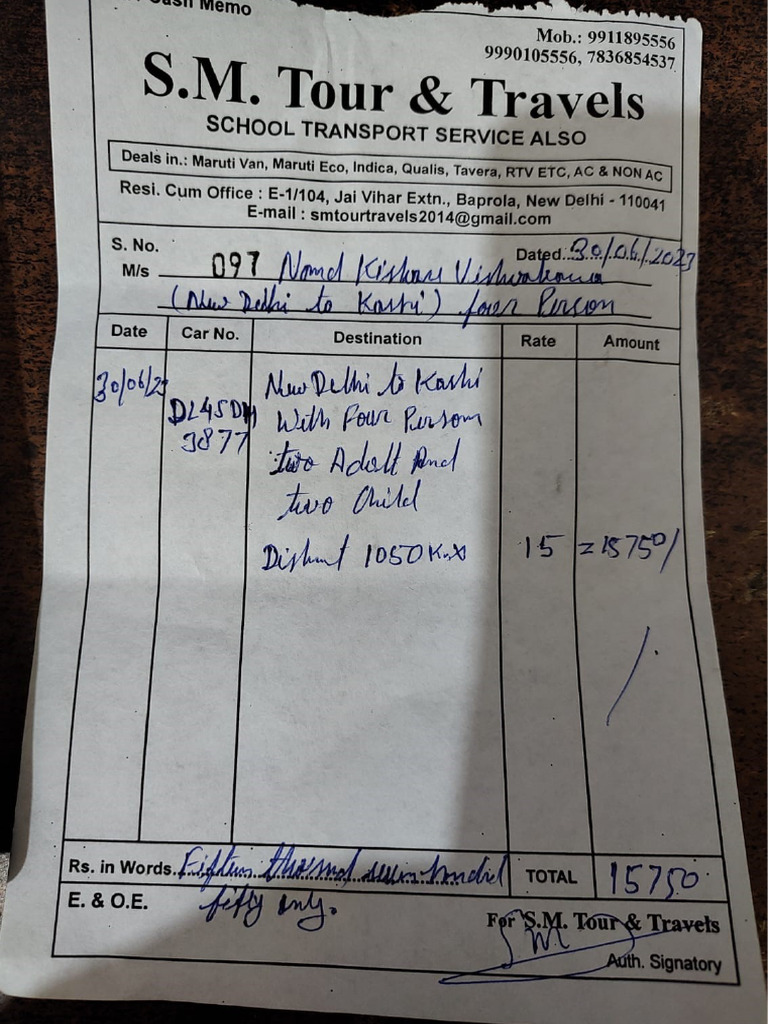 Cash Memo
Mob.: 9911895556
9990105556, 7836854537
S.M. Tour & Travels
SCHOOL TRANSPORT SERVICE ALSO
Deals in.: Maruti Van, Maruti Eco, Indica, Qualis, Tavera, RTV ETC, AC & NON AC
Resi. Cum Office : E-1/104, Jai Vihar Extn., Baprola, New Delhi - 110041
E-mail : smtourtravels2014@gmail.com
S. No. 097 Dated..30/06/2023
M/s Nand Kishor Vishwakarma
(New Delhi to Kashi) four Person
Date Car No. Destination Rate Amount
30/06/23 New Delhi to Kashi
DL4SDH With Four Person
3877 two Adult And
two Child
1050 15 = 15750/
Rs. in Words. Fifteen thousand seven hundred TOTAL 15750
E. & O.E. fifty only.
For S.M. Tour & Travels
Auth. Signatory